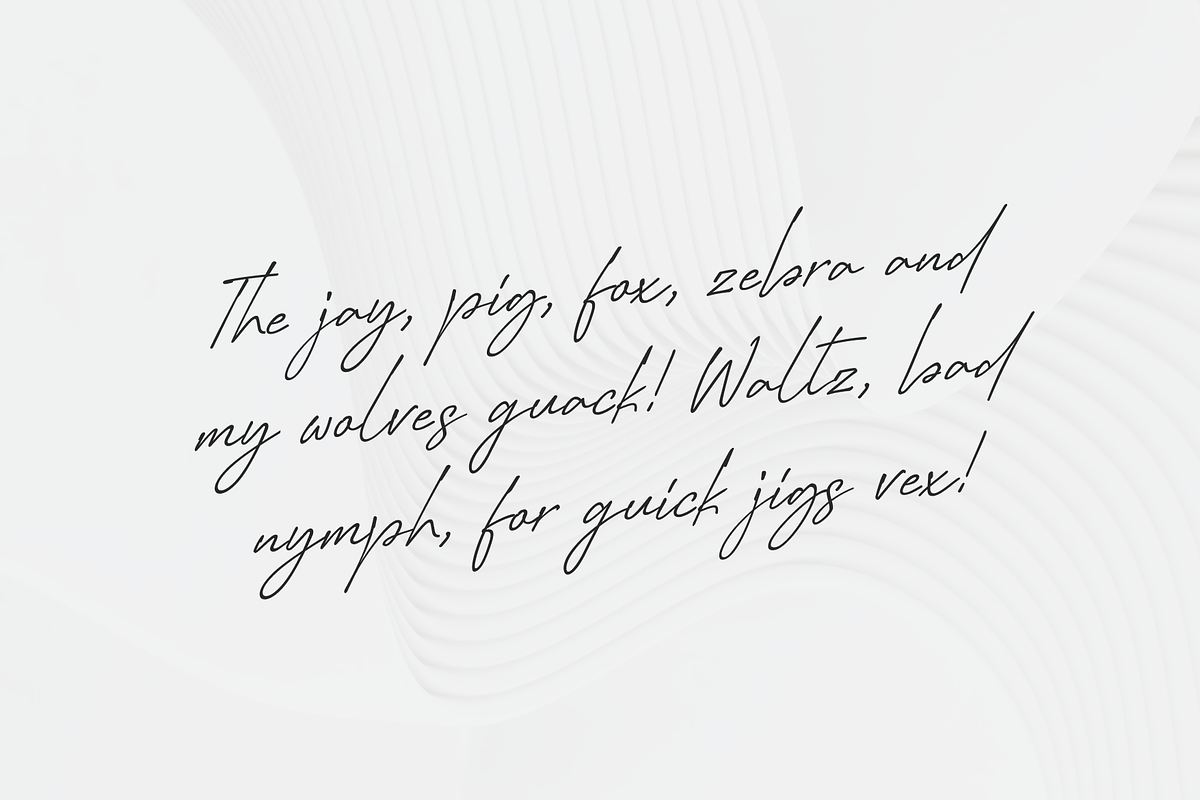 The jay, pig, fox, zebra and
my wolves quack! Waltz, bad
nymph, for quick jigs vex!